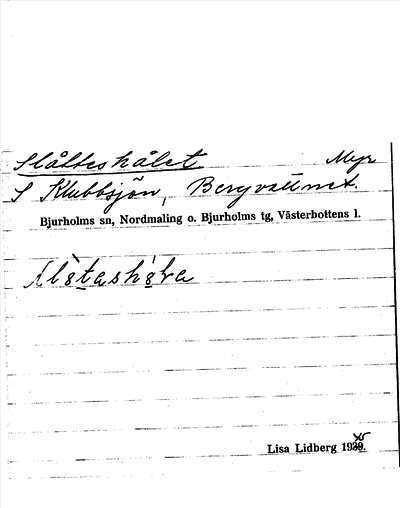 Slåtteshålet Myr
S Klubbsjön, Bergvattnet.
Bjurholms sn, Nordmaling o. Bjurholms tg, Västerbottens l.
Lisa Lidberg 1939.